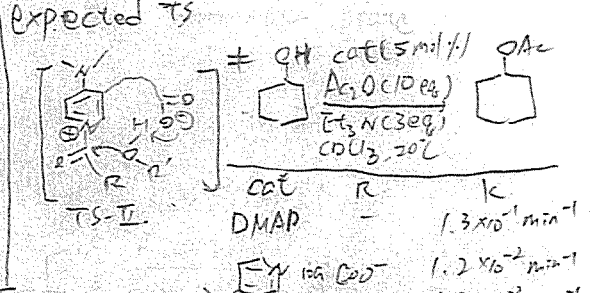 expected TS
OH cat (5 mol%) OAc
Ac2O (10 eq)
Et3N (3 eq)
CDCl3, 20°C
N
O
H O ⊖
⊕
O R'
R
TS-II
cat R k
DMAP - 1.3 × 10^-1 min^-1
COO⁻ 1.2 × 10^-2 min^-1